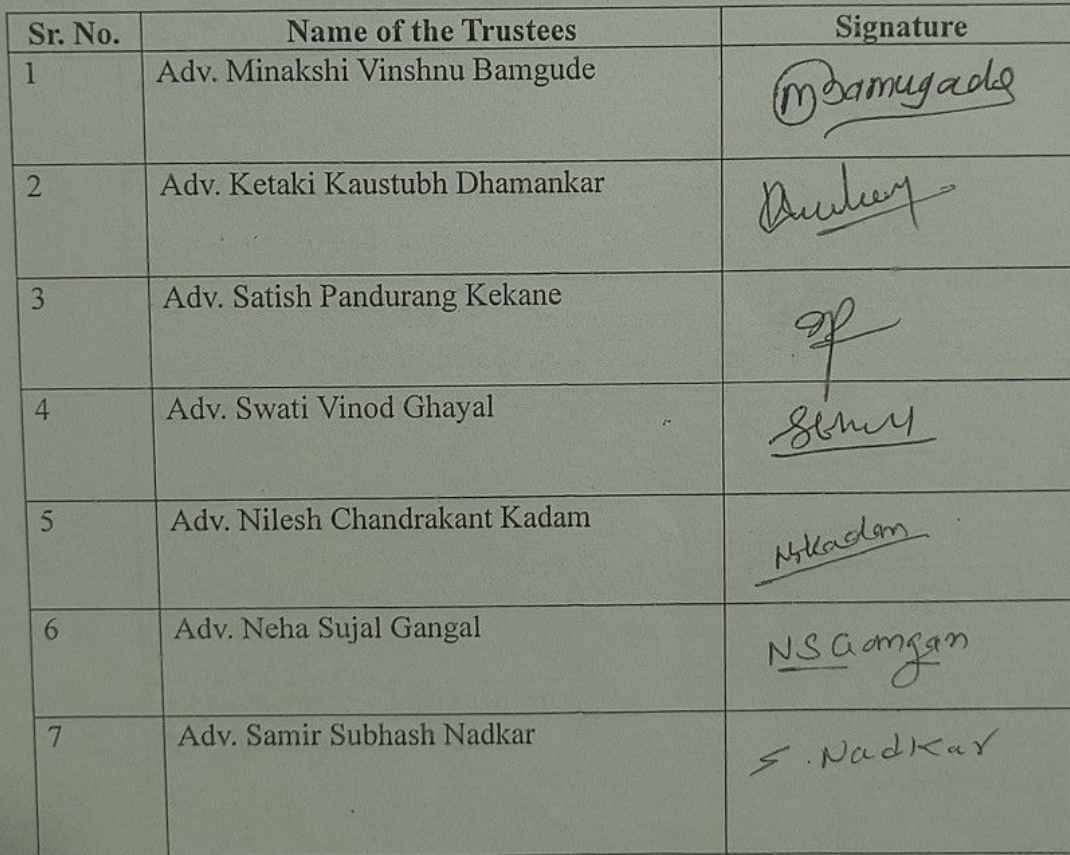 Sr. No. Name of the Trustees Signature
1 Adv. Minakshi Vinshnu Bamgude MBamugade
2 Adv. Ketaki Kaustubh Dhamankar
3 Adv. Satish Pandurang Kekane
4 Adv. Swati Vinod Ghayal
5 Adv. Nilesh Chandrakant Kadam NKadam
6 Adv. Neha Sujal Gangal NSGangan
7 Adv. Samir Subhash Nadkar S. Nadkar